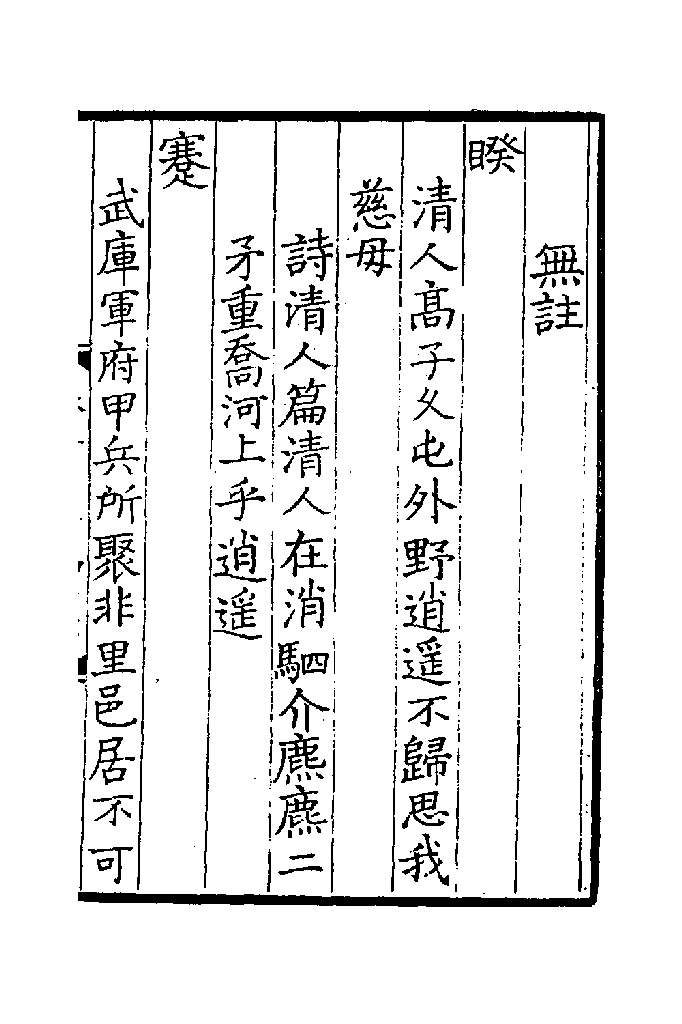 無註
睽
清人高子久屯外野逍遥不歸思我
慈母
詩清人篇清人在消駟介麃麃二
矛重喬河上乎逍遥
蹇
武庫軍府甲兵所聚非里邑居不可